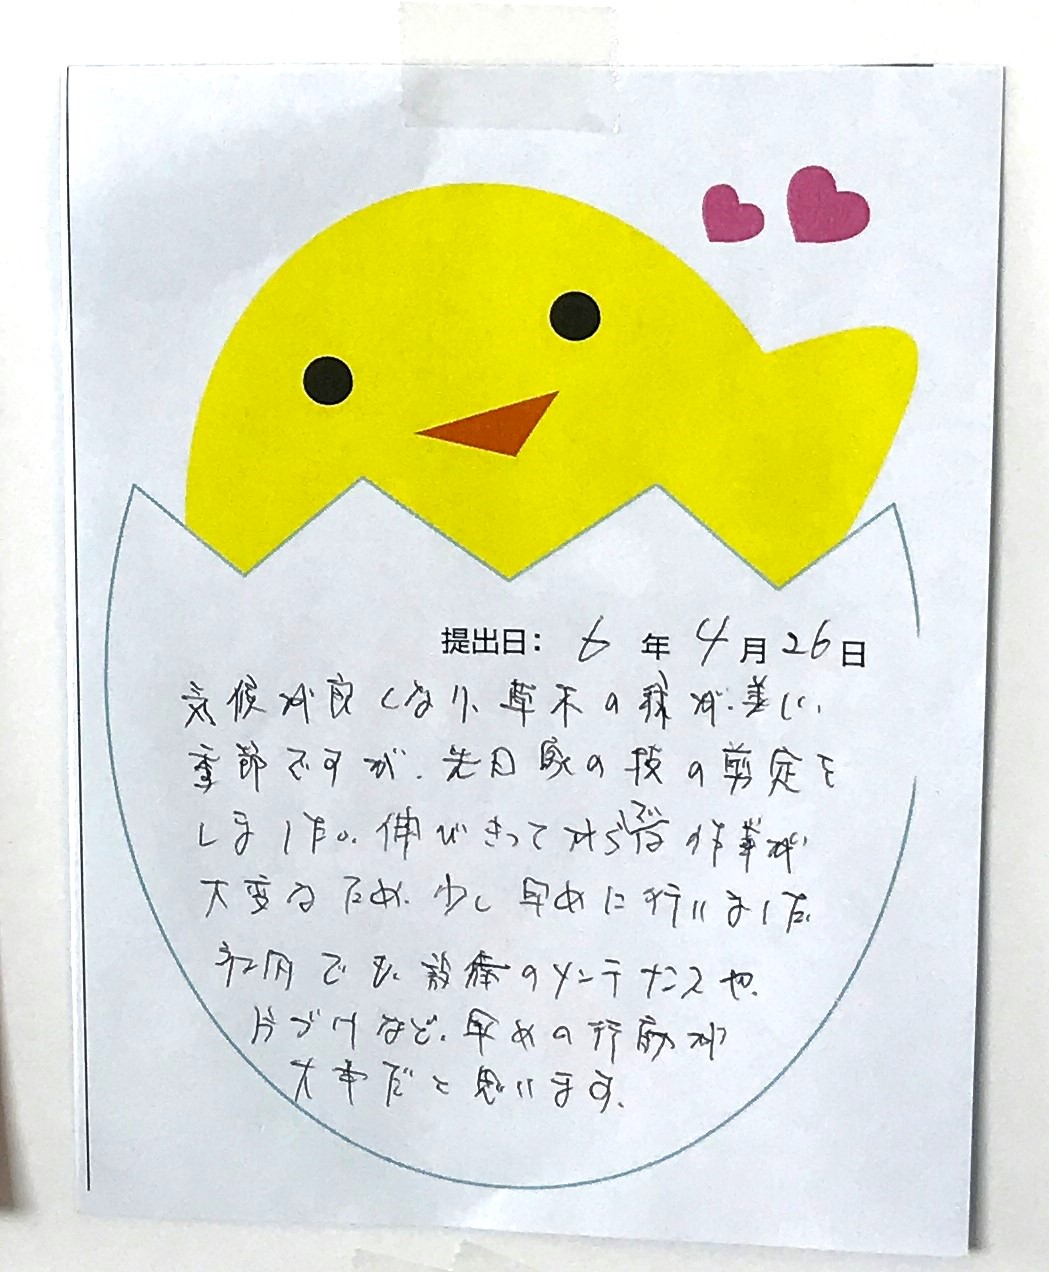 提出日： 6 年 4 月 26 日
気候が良くなり、草木の緑が、美しい
季節ですが、先日家の枝の剪定を
しました。伸びきってからでは作業が
大変なため、少し早めに行いました。
でも、設備のメンテナンスや、
片づけなど、早めの行動が
大事だと思います。